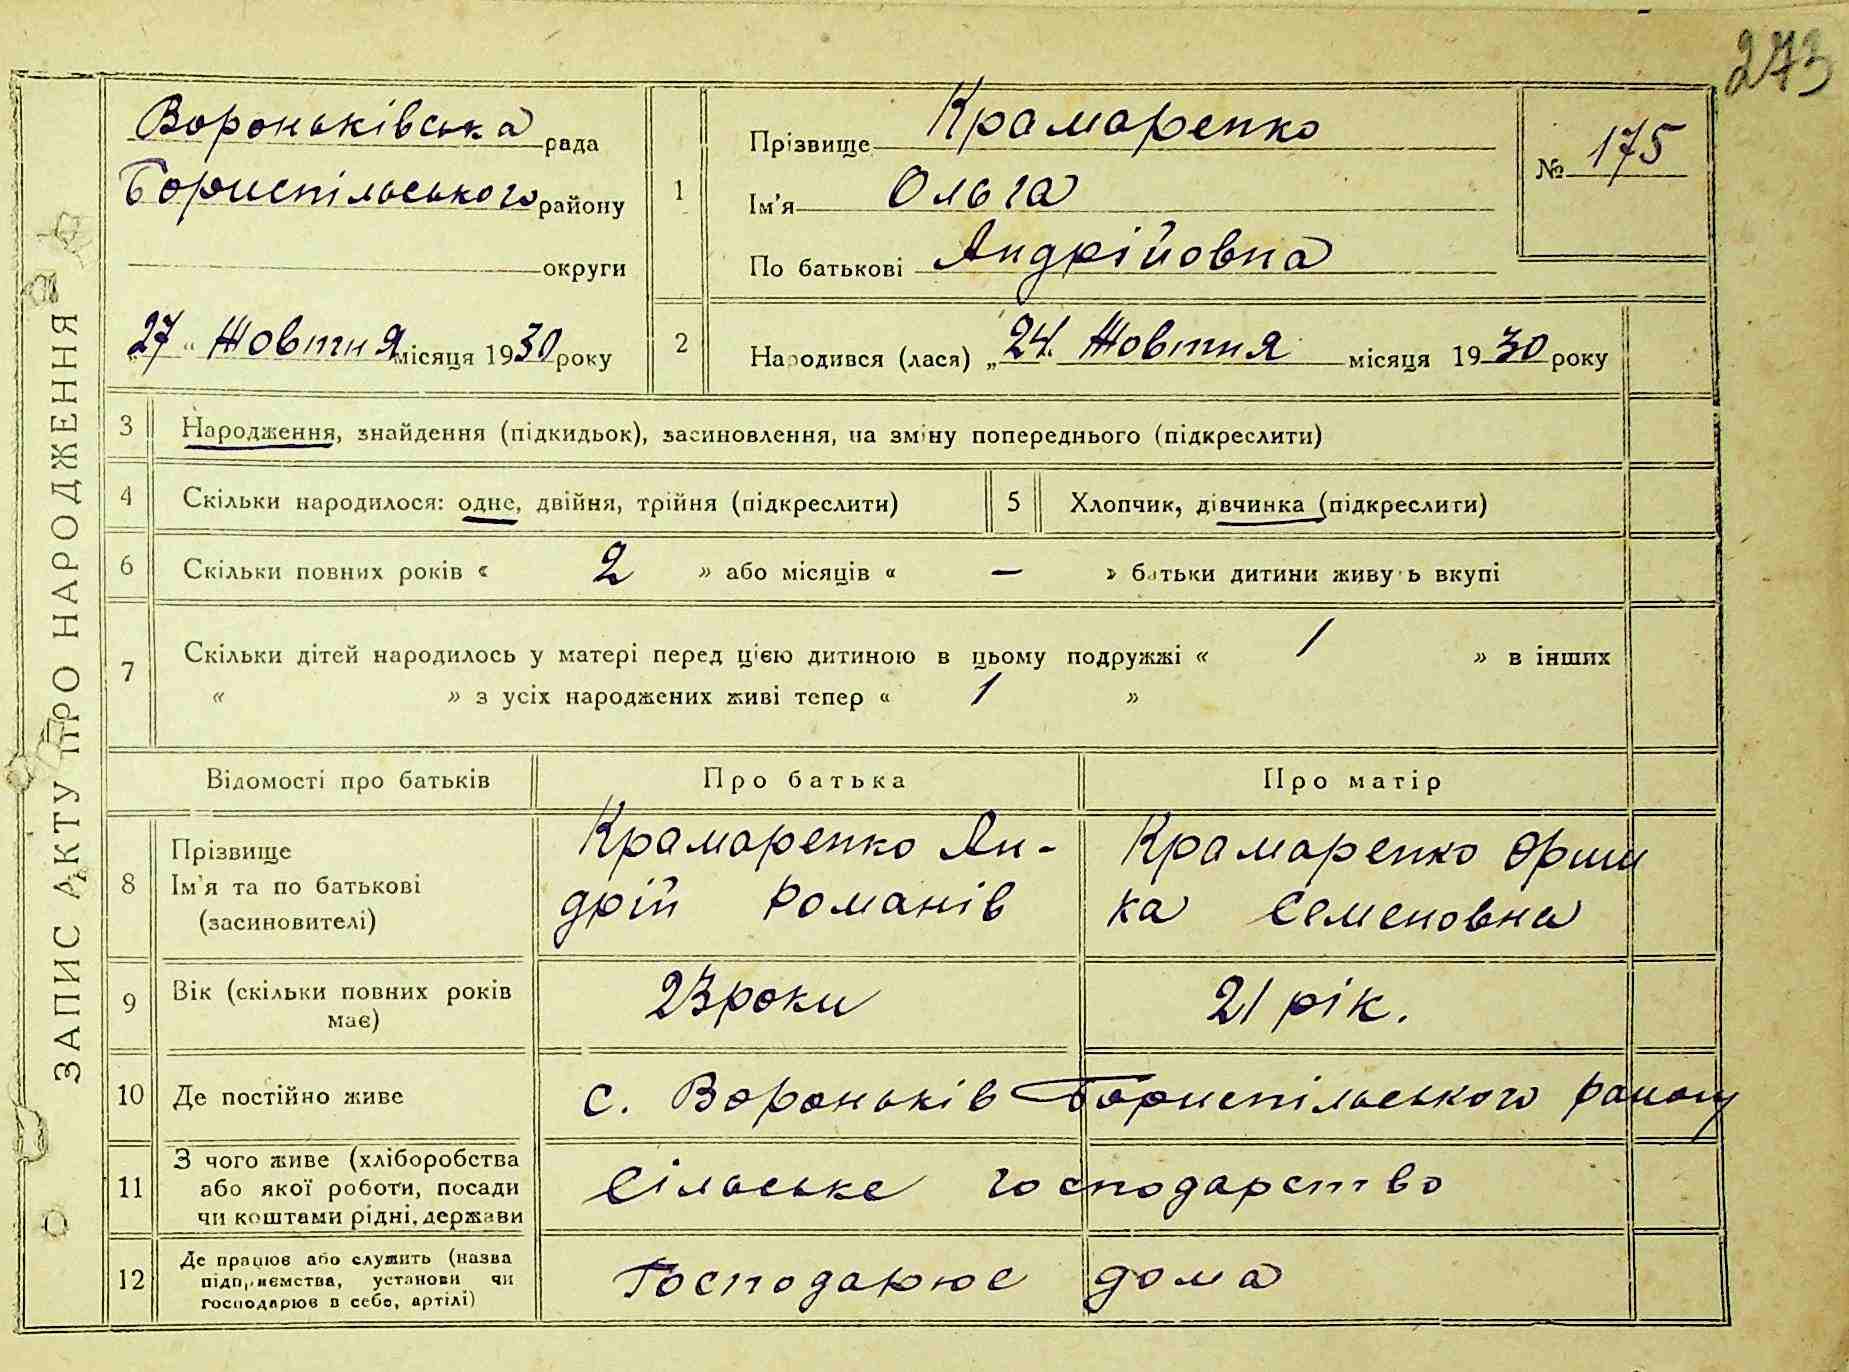 273
ЗАПИС АКТУ ПРО НАРОДЖЕННЯ
Вороньківська рада
Бориспільського району
округи
„27“ Жовтня місяця 1930 року
1
Прізвище Крамаренко
Ім'я Ольга
По батькові Андрійовна
№ 175
2
Народився (лася) „24. Жовтня місяця 1930 року
3 Народження, знайдення (підкидьок), засиновлення, на зміну попереднього (підкреслити)
4 Скільки народилося: одне, двійня, трійня (підкреслити) 5 Хлопчик, дівчинка (підкреслити)
6 Скільки повних років « 2 » або місяців « – » батьки дитини живуть вкупі
7 Скільки дітей народилось у матері перед цією дитиною в цьому подружжі « 1 » в інших
« » з усіх народжених живі тепер « 1 »
Відомості про батьків Про батька Про матір
8 Прізвище
Ім'я та по батькові
(засиновителі)
Крамаренко Ан-
дрій Романів
Крамаренко Ориш
ка Семеновна
9 Вік (скільки повних років
має)
23 роки 21 рік.
10 Де постійно живе с. Вороньків Бориспільського району
11 З чого живе (хліборобства
або якої роботи, посади
чи коштами рідні, держави
Сільське господарство
12 Де працює або служить (назва
підприємства, установи чи
господарює в себе, артілі)
Господарює дома